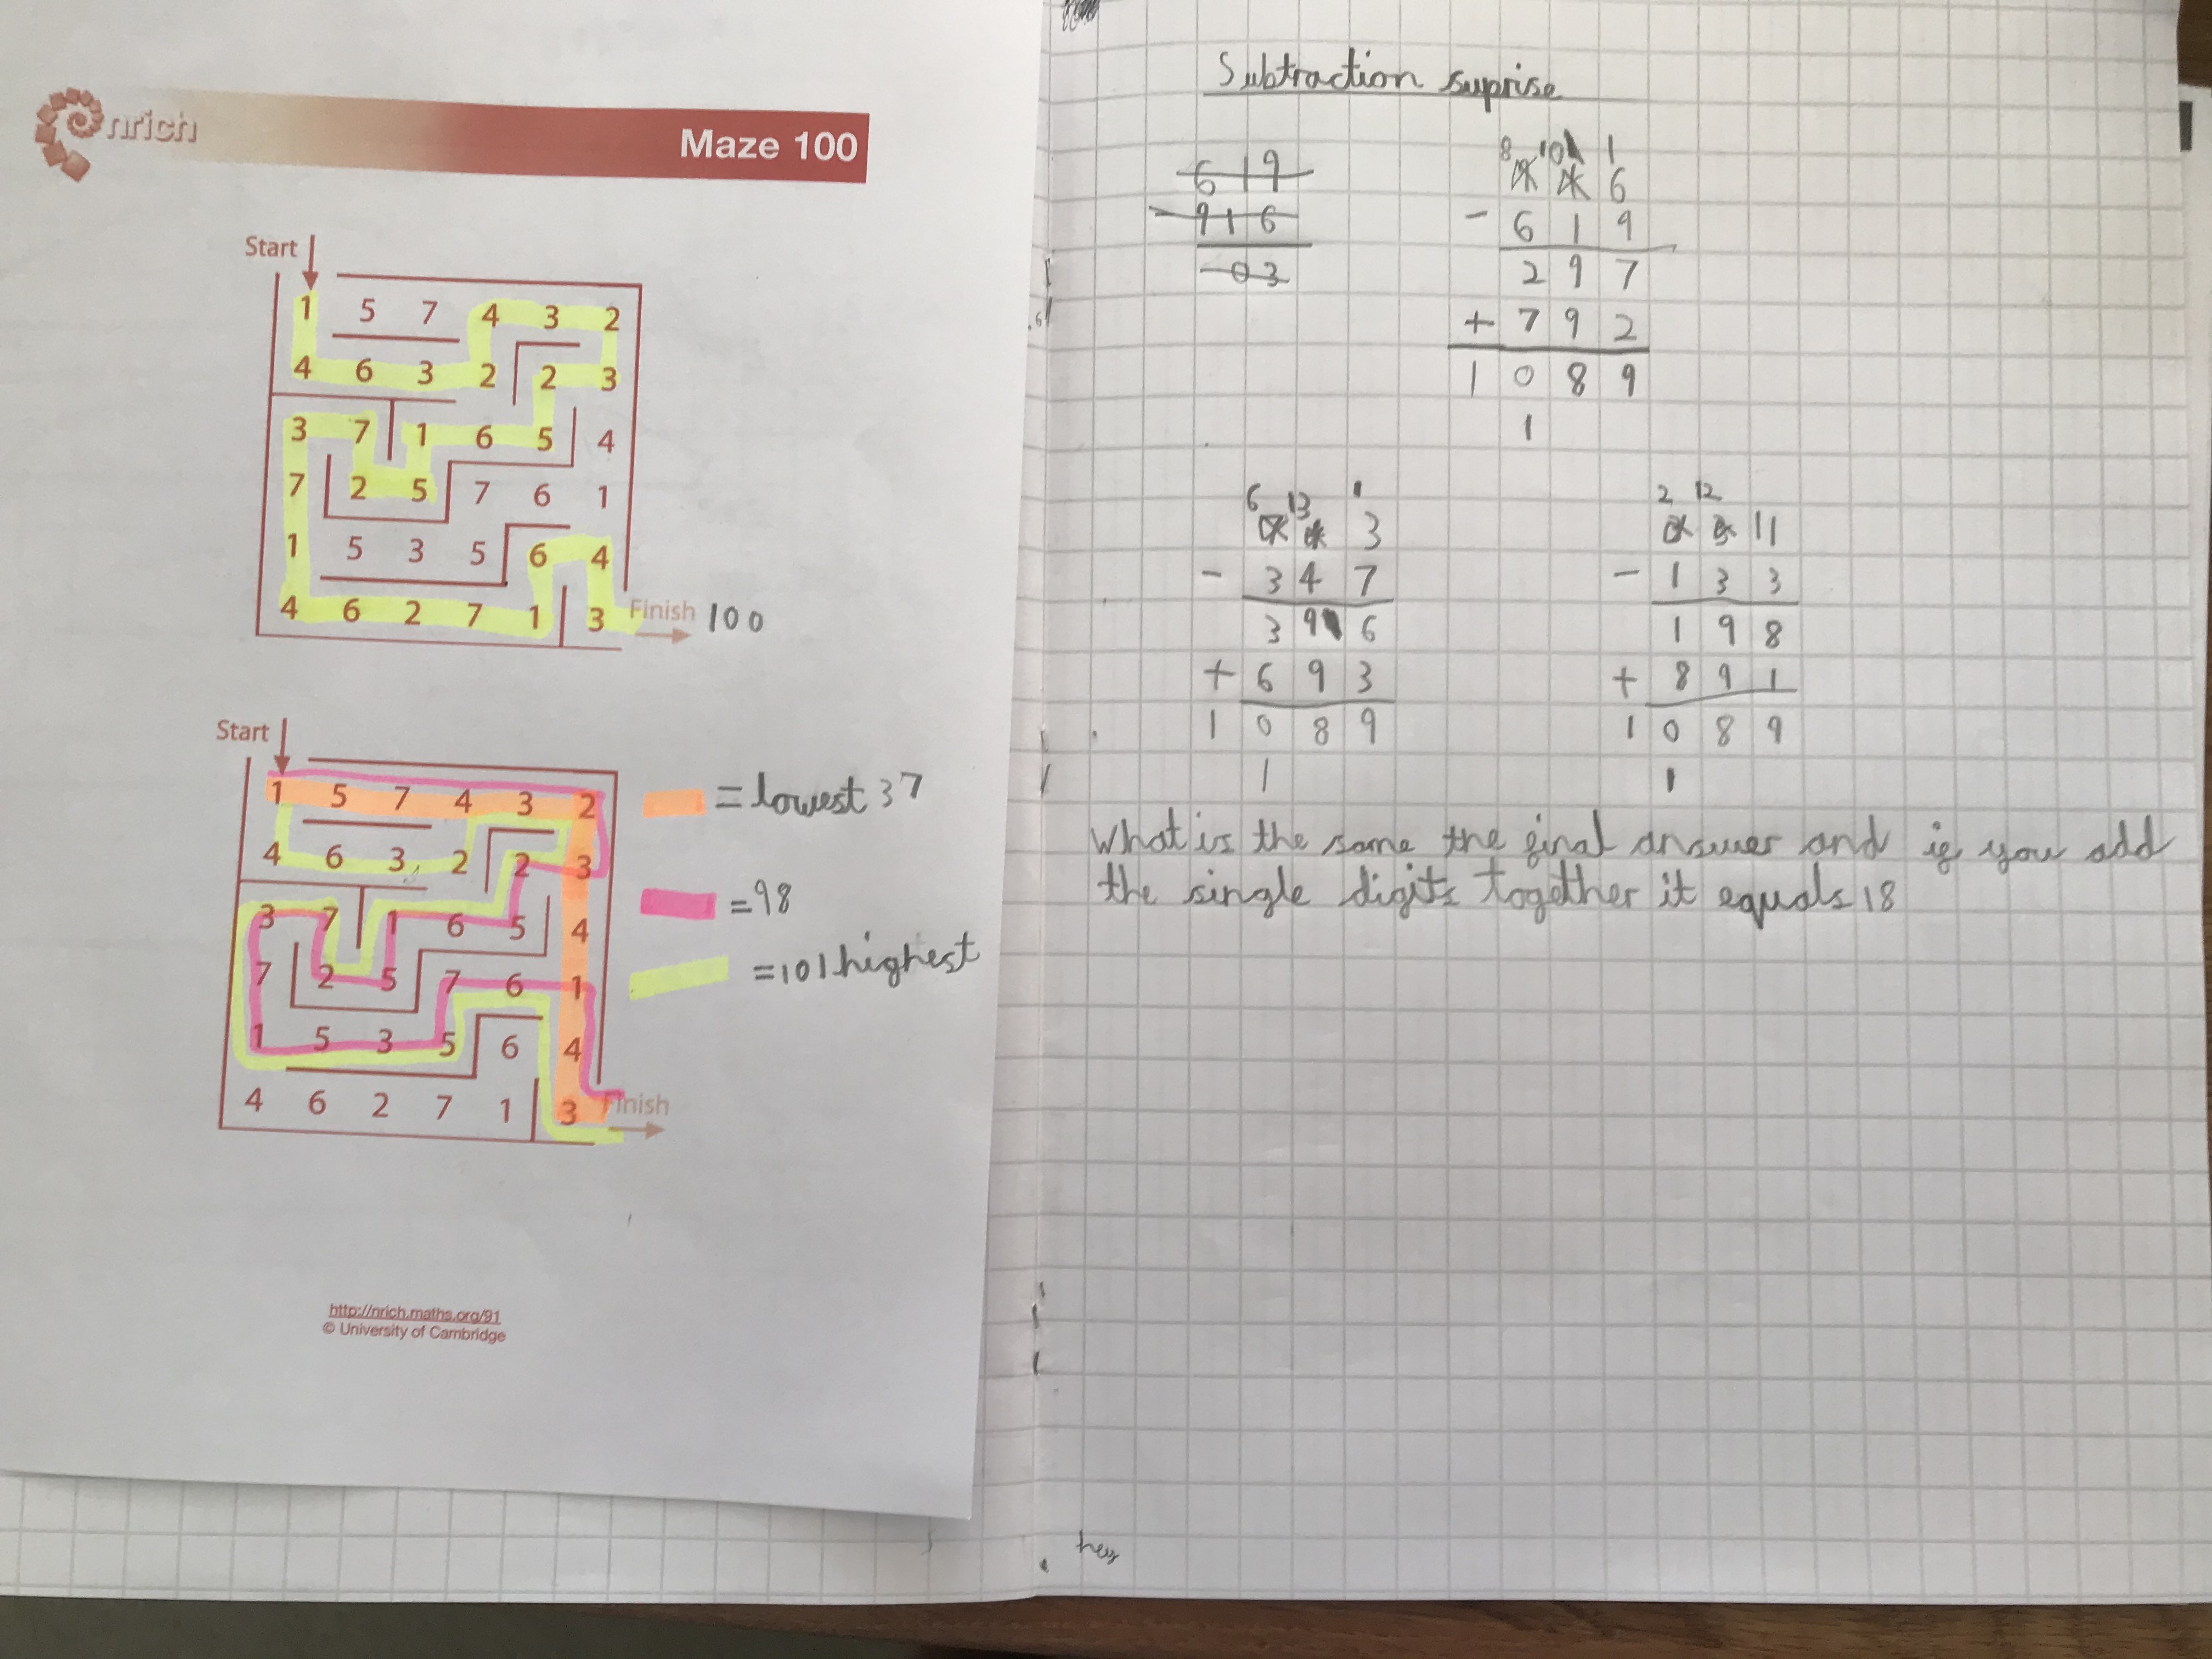 nrich
Maze 100
Start
1 5 7 4 3 2
4 6 3 2 2 3
3 7 1 6 5 4
7 2 5 7 6 1
1 5 3 5 6 4
4 6 2 7 1 3 Finish 100
Start
1 5 7 4 3 2
= lowest 37
4 6 3 2 2 3
= 98
3 7 1 6 5 4
7 2 5 7 6 1
= 101 highest
1 5 3 5 6 4
4 6 2 7 1 3 Finish
http://nrich.maths.org/91
© University of Cambridge
Subtraction suprise
6 1 9
- 9 1 6
- 0 3
8 10 1
6
- 6 1 9
2 9 7
+ 7 9 2
1 0 8 9
1
6 13 1
3
- 3 4 7
3 9 6
+ 6 9 3
1 0 8 9
1
2 12
11
- 1 3 3
1 9 8
+ 8 9 1
1 0 8 9
1
What is the same the final answer and if you add
the single digits together it equals 18
hey